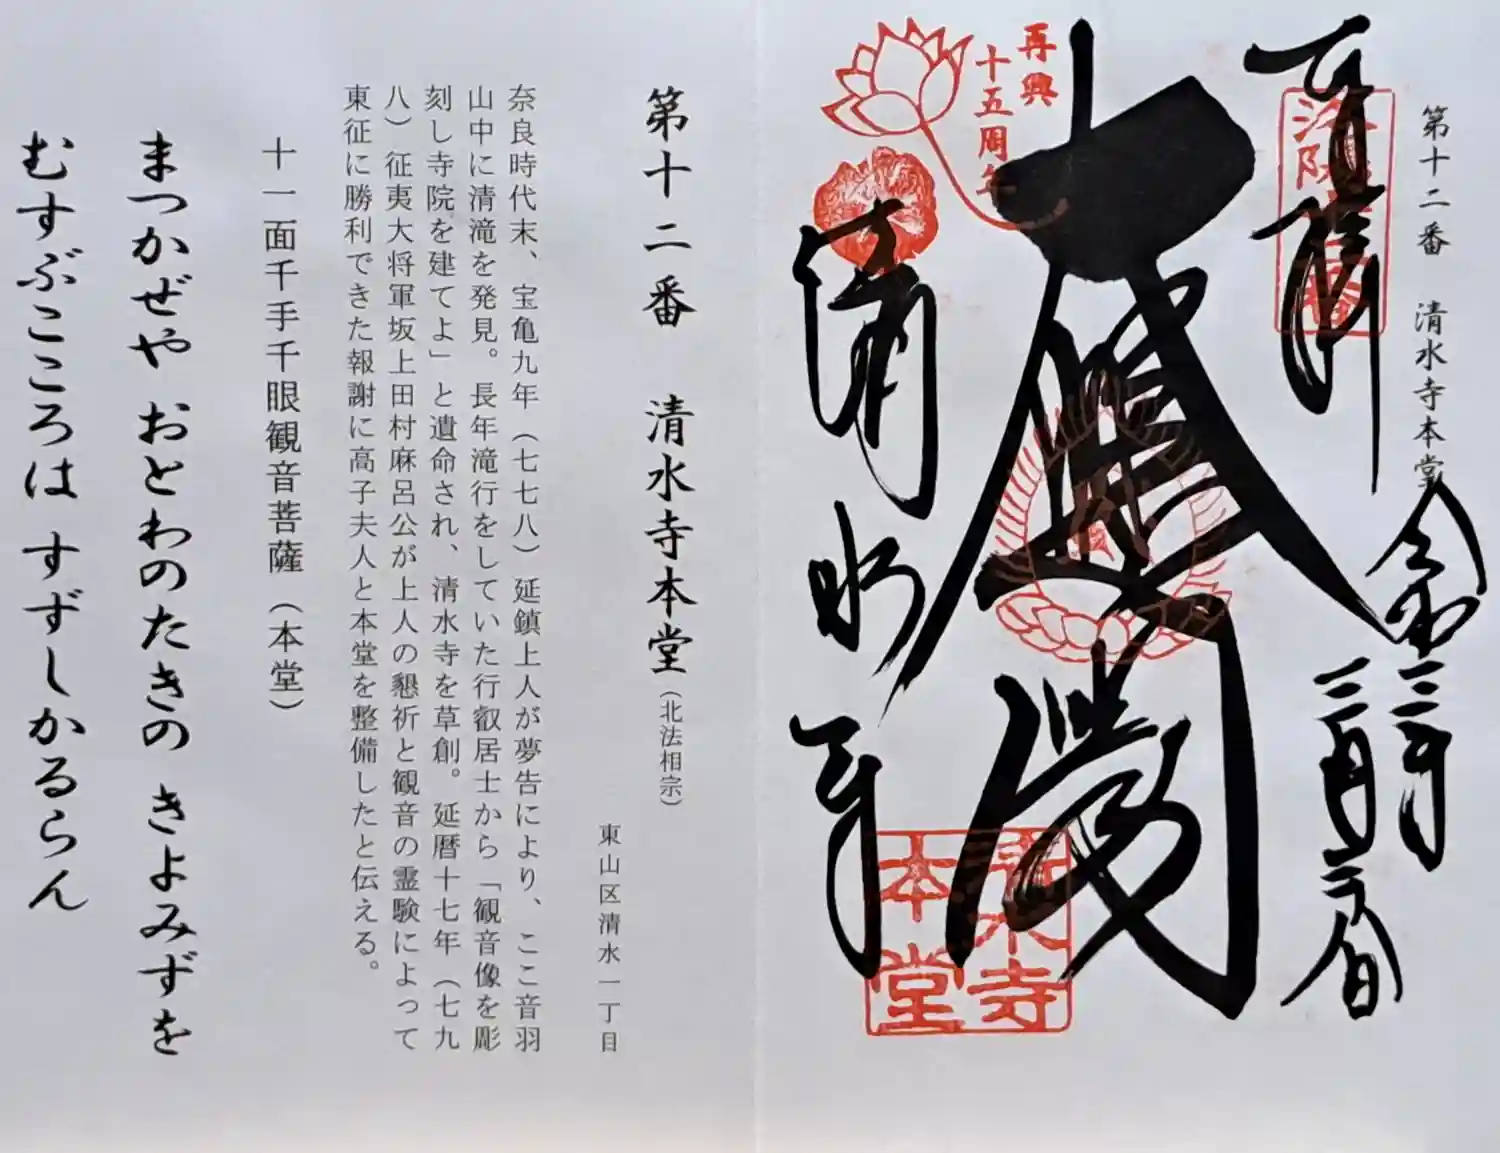 第十二番 清水寺本堂
奉拝
洛陽十二番
令和二年
二月二日
再興
十五周年
大悲閣
清水寺
清水寺
本堂
第十二番 清水寺本堂（北法相宗）
東山区清水一丁目
奈良時代末、宝亀九年（七七八）延鎮上人が夢告により、ここ音羽
山中に清滝を発見。長年滝行をしていた行叡居士から「観音像を彫
刻し寺院を建てよ」と遺命され、清水寺を草創。延暦十七年（七九
八）征夷大将軍坂上田村麻呂公が上人の懇祈と観音の霊験によって
東征に勝利できた報謝に高子夫人と本堂を整備したと伝える。
十一面千手千眼観音菩薩（本堂）
まつかぜや おとわのたきの きよみずを
むすぶこころは すずしかるらん